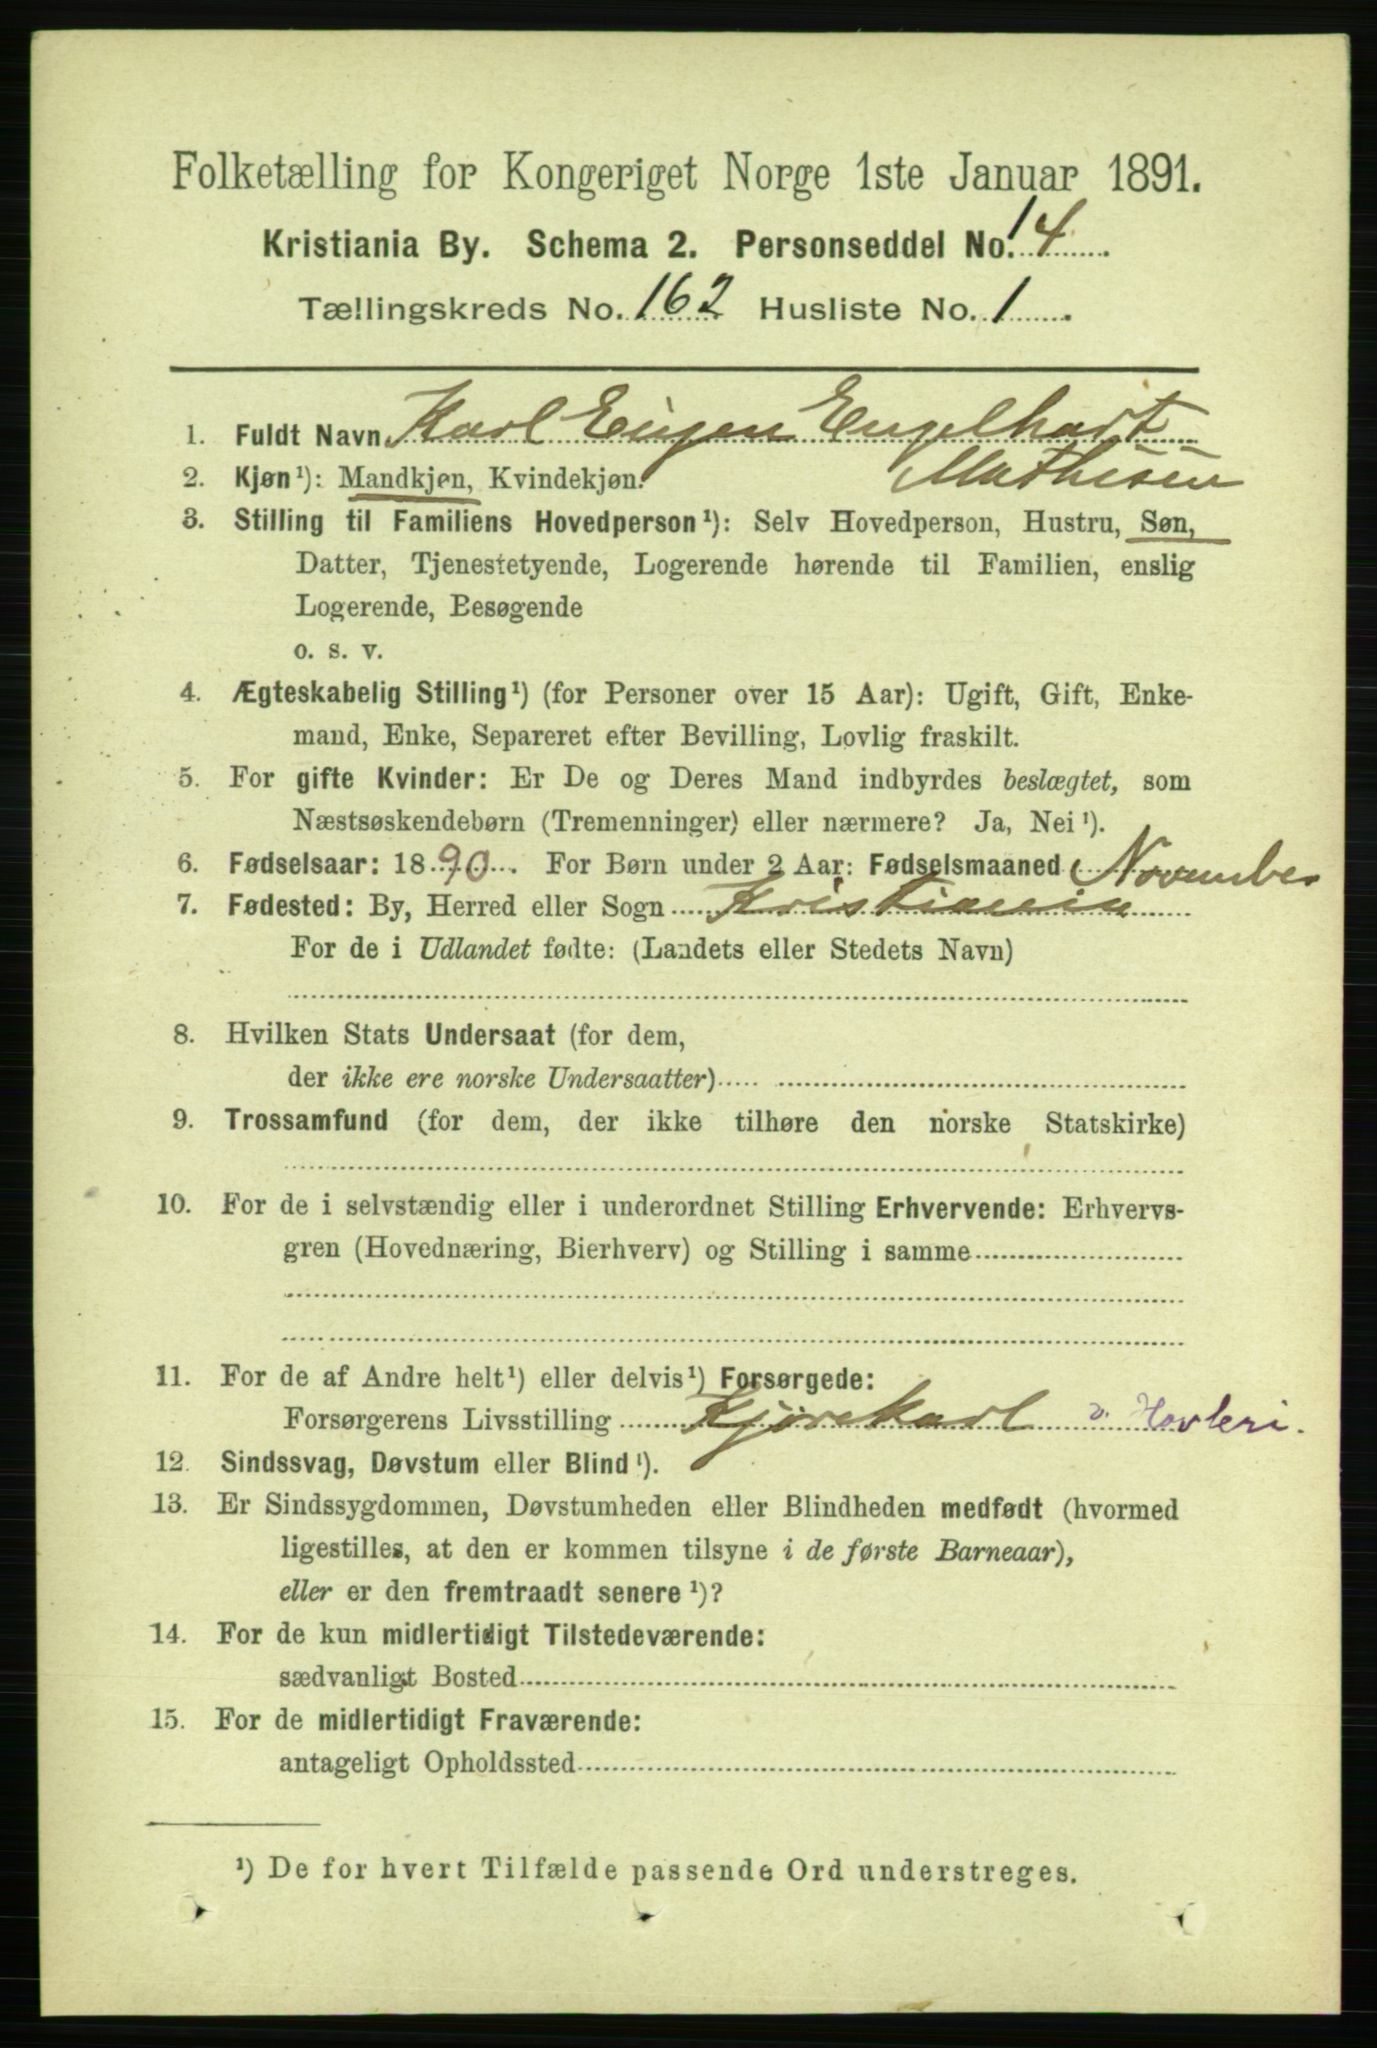 Folketælling for Kongeriget Norge 1ste Januar 1891.
Kristiania By. Schema 2. Personseddel No. 14
Tællingskreds No. 162 Husliste No. 1
1. Fuldt Navn Karl Eugen Engelhart
Mathisen
2. Kjøn¹): Mandkjøn, Kvindekjøn.
3. Stilling til Familiens Hovedperson¹): Selv Hovedperson, Hustru, Søn,
Datter, Tjenestetyende, Logerende hørende til Familien, enslig
Logerende, Besøgende
o. s. v.
4. Ægteskabelig Stilling¹) (for Personer over 15 Aar): Ugift, Gift, Enke-
mand, Enke, Separeret efter Bevilling, Lovlig fraskilt.
5. For gifte Kvinder: Er De og Deres Mand indbyrdes beslægtet, som
Næstsøskendebørn (Tremenninger) eller nærmere? Ja, Nei¹).
6. Fødselsaar: 1890. For Børn under 2 Aar: Fødselsmaaned November
7. Fødested: By, Herred eller Sogn Kristiania
For de i Udlandet fødte: (Landets eller Stedets Navn)
8. Hvilken Stats Undersaat (for dem,
der ikke ere norske Undersaatter)
9. Trossamfund (for dem, der ikke tilhøre den norske Statskirke)
10. For de i selvstændig eller i underordnet Stilling Erhvervende: Erhvervs-
gren (Hovednæring, Bierhverv) og Stilling i samme
11. For de af Andre helt¹) eller delvis¹) Forsørgede:
Forsørgerens Livsstilling Kjørekarl v. Høvleri.
12. Sindssvag, Døvstum eller Blind¹).
13. Er Sindssygdommen, Døvstumheden eller Blindheden medfødt (hvormed
ligestilles, at den er kommen tilsyne i de første Barneaar),
eller er den fremtraadt senere¹)?
14. For de kun midlertidigt Tilstedeværende:
sædvanligt Bosted
15. For de midlertidigt Fraværende:
antageligt Opholdssted
¹) De for hvert Tilfælde passende Ord understreges.